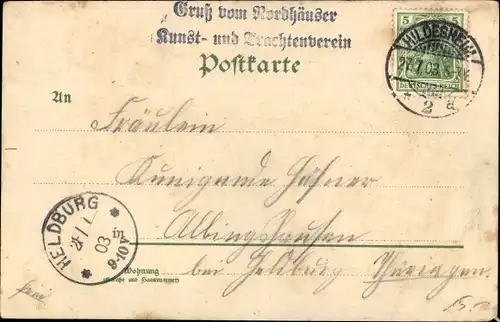 Gruß vom Nordhäuser
Kunst- und Trachtenverein
Postkarte
5 5
DEUTSCHES REICH
HILDESHEIM
7 03
2 a
An
Fräulein
Kunigunde Häfner
Albingshausen
bei Heldburg Thüringen.
HELDBURG
03
8-9
Wohnung
(Straße und Hausnummer)
15.-